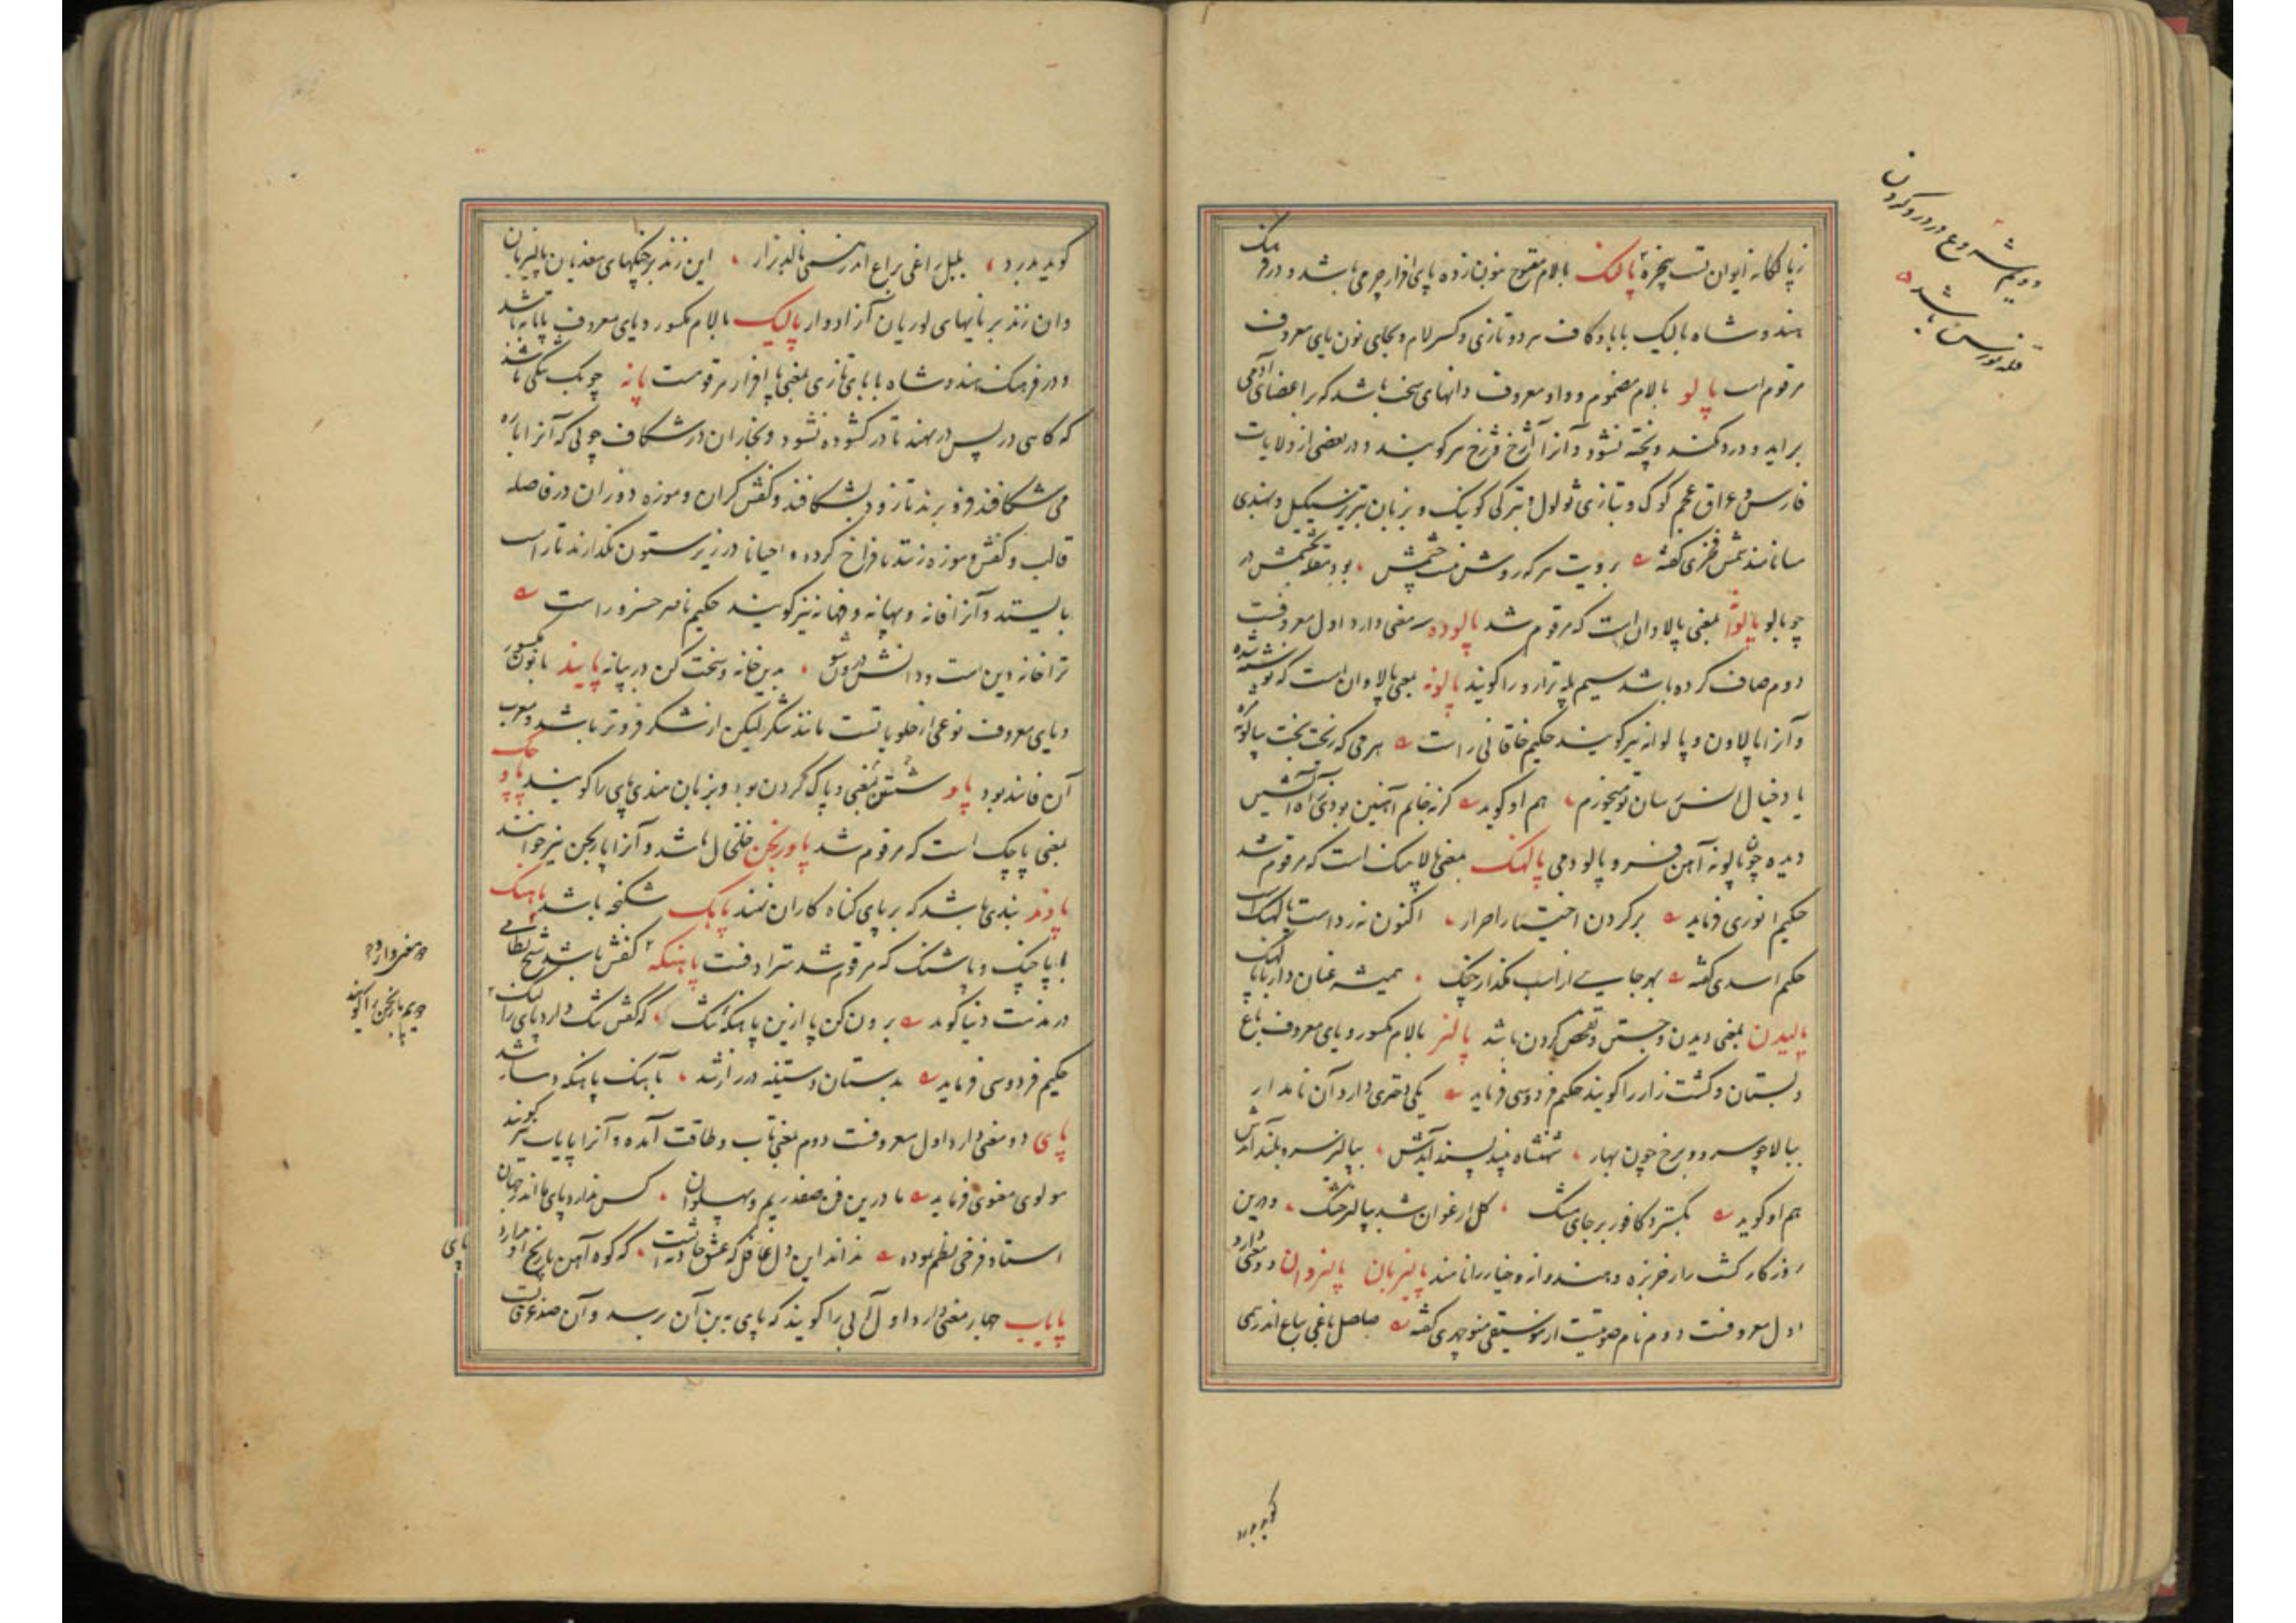 زپالکانه ایوان تست پنجره پالنک بالام مفتوح بنون زده پای افزار چرمی باشد و در فرهنک
هندوشاه بالیک بابا و کاف هر دو تازی و کسر لام و بجای نون یای معروف
مرقوم است پالو بالام مضموم و واو معروف دانهای سخت باشد که بر اعضای آدمی
براید و درد نکند و پخته نشود و آنرا آژخ و ژخ نیز کویند و در بعضی از ولایات
فارس و عراق عجم کوک و بتازی ثولول و بترکی کوینک و بزبان تبریز سیکیل و بهندی
سا نامند شمس فخری کفته برویت هر که روشن نیست چشمش بود بتخمه چشمش در
چو پالو پالوا بمعنی پالاوان است که مرقوم شد پالوده سه معنی دارد اول معروفست
دوم صاف کرده باشد سیم پله ترازو را کویند پالونه بمعنی پالاوان است که نوشته شده
و آنرا پالاون و پالوانه نیز کویند حکیم خاقانی راست هر می که ریخت بخت بپالونه
یا و خیال انس سان تو میخورم هم او کوید کرنه خایم آهنین بودی ز آه آتشین
دیده چون پالونه آهن فرو پالودمی پالهنک بمعنی پالاهنک است که مرقوم شد
حکیم انوری فرماید بر کردن اختیار احرار اکنون نه رداست پالهنک است
حکیم اسدی کفته بهر جایی از اسب مکذار چنک همیشه عنان دار با پالهنک
پالیدن بمعنی دیدن و جستن و تفحص کردن باشد پالیز بالام مکسور و یای معروف باغ
و بستان و کشت زار را کویند حکیم فردوسی فرماید یکی دختری دارد آن نامدار
ببالا چو سرو و برخ چون بهار شهنشاه پسند آیدش بپالیز سرو بلند آیدش
هم او کوید بکسترد کافور بر جای مشک کل ارغوان شد بپالیز خشک و درین
روزکار کشت زار خربزه و هندوانه و خیار را نامند پالیزبان پالیزوان دو معنی دارد
اول معروفست دوم نام صوتیست از موسیقی منوچهری کفته صلصل باغی بباغ اندر همی
دویم شروع در درو کردن
غله نورس باشد
کوید بدرد
کوید بدرد بلبل راغی براغ اندر همی نالد بزار این زند بر چنکهای سغدیان پالیزبان
وان زند بر نایهای لوریان آزادوار پالیک بالام مکسور و یای معروف پاتابه باشد
و در فرهنک هندوشاه با بای تازی بمعنی پا افزار مرقومست پانه چوبک تنکی باشد
که کاهی در پس در نهند تا در کشوده نشود و نجاران در شکاف چوبی که آنرا باره
می شکافند فرو برند تا زود بشکافد و کفش کران و موزه دوزان در فاصله
قالب و کفش و موزه زنند تا فراخ کردد و احیانا در زیر ستون بکذارند تا راست
بایستد و آنرا فانه و پهانه و فهانه نیز کویند حکیم ناصر خسرو راست
ترا خانه دین است و دانش درون شو بدین خانه و سخت کن در بپانه پانیذ با نون مکسور
و یای معروف نوعی از حلویاتست مانند شکر لیکن از شکر فروتر باشد و معرب
آن فانیذ بود پاو شستن بمعنی و پاک کردن بود و بزبان هندی پای را کویند پاوچک
بمعنی پاچک است که مرقوم شد پاورنجن خلخال باشد و آنرا پابرنجن نیز خوانند
پاوند بندی باشد که بر پای کناه کاران نهند پاهک شکنجه باشد پاهنک
با پاچنک و پاشنک که مرقوم شد مترادفست پاهنکه کفش باشد شیخ نظامی
در مذمت دنیا کوید برون کن پا ازین پاهنکه تنک که کفش تنک دارد پای را لنک
حکیم فردوسی فرماید بدستان و ستیند در راز شد
پای دو معنی دارد اول معروفست دوم بمعنی تاب و طاقت آمده و آنرا پایاب نیز کویند
مولوی معنوی فرماید ما درین فن صفدریم و پهلوان کس ندارد پای ما اندر جهان
استاد فرخی نظم نموده نداند این دل غافل که عشق حادثه است که کوه آهن با رنج او ندارد پای
پایاب چهار معنی دارد اول آبی را کویند که پای به بن آن برسد و آن ضد غرقابست
دو معنی دارد